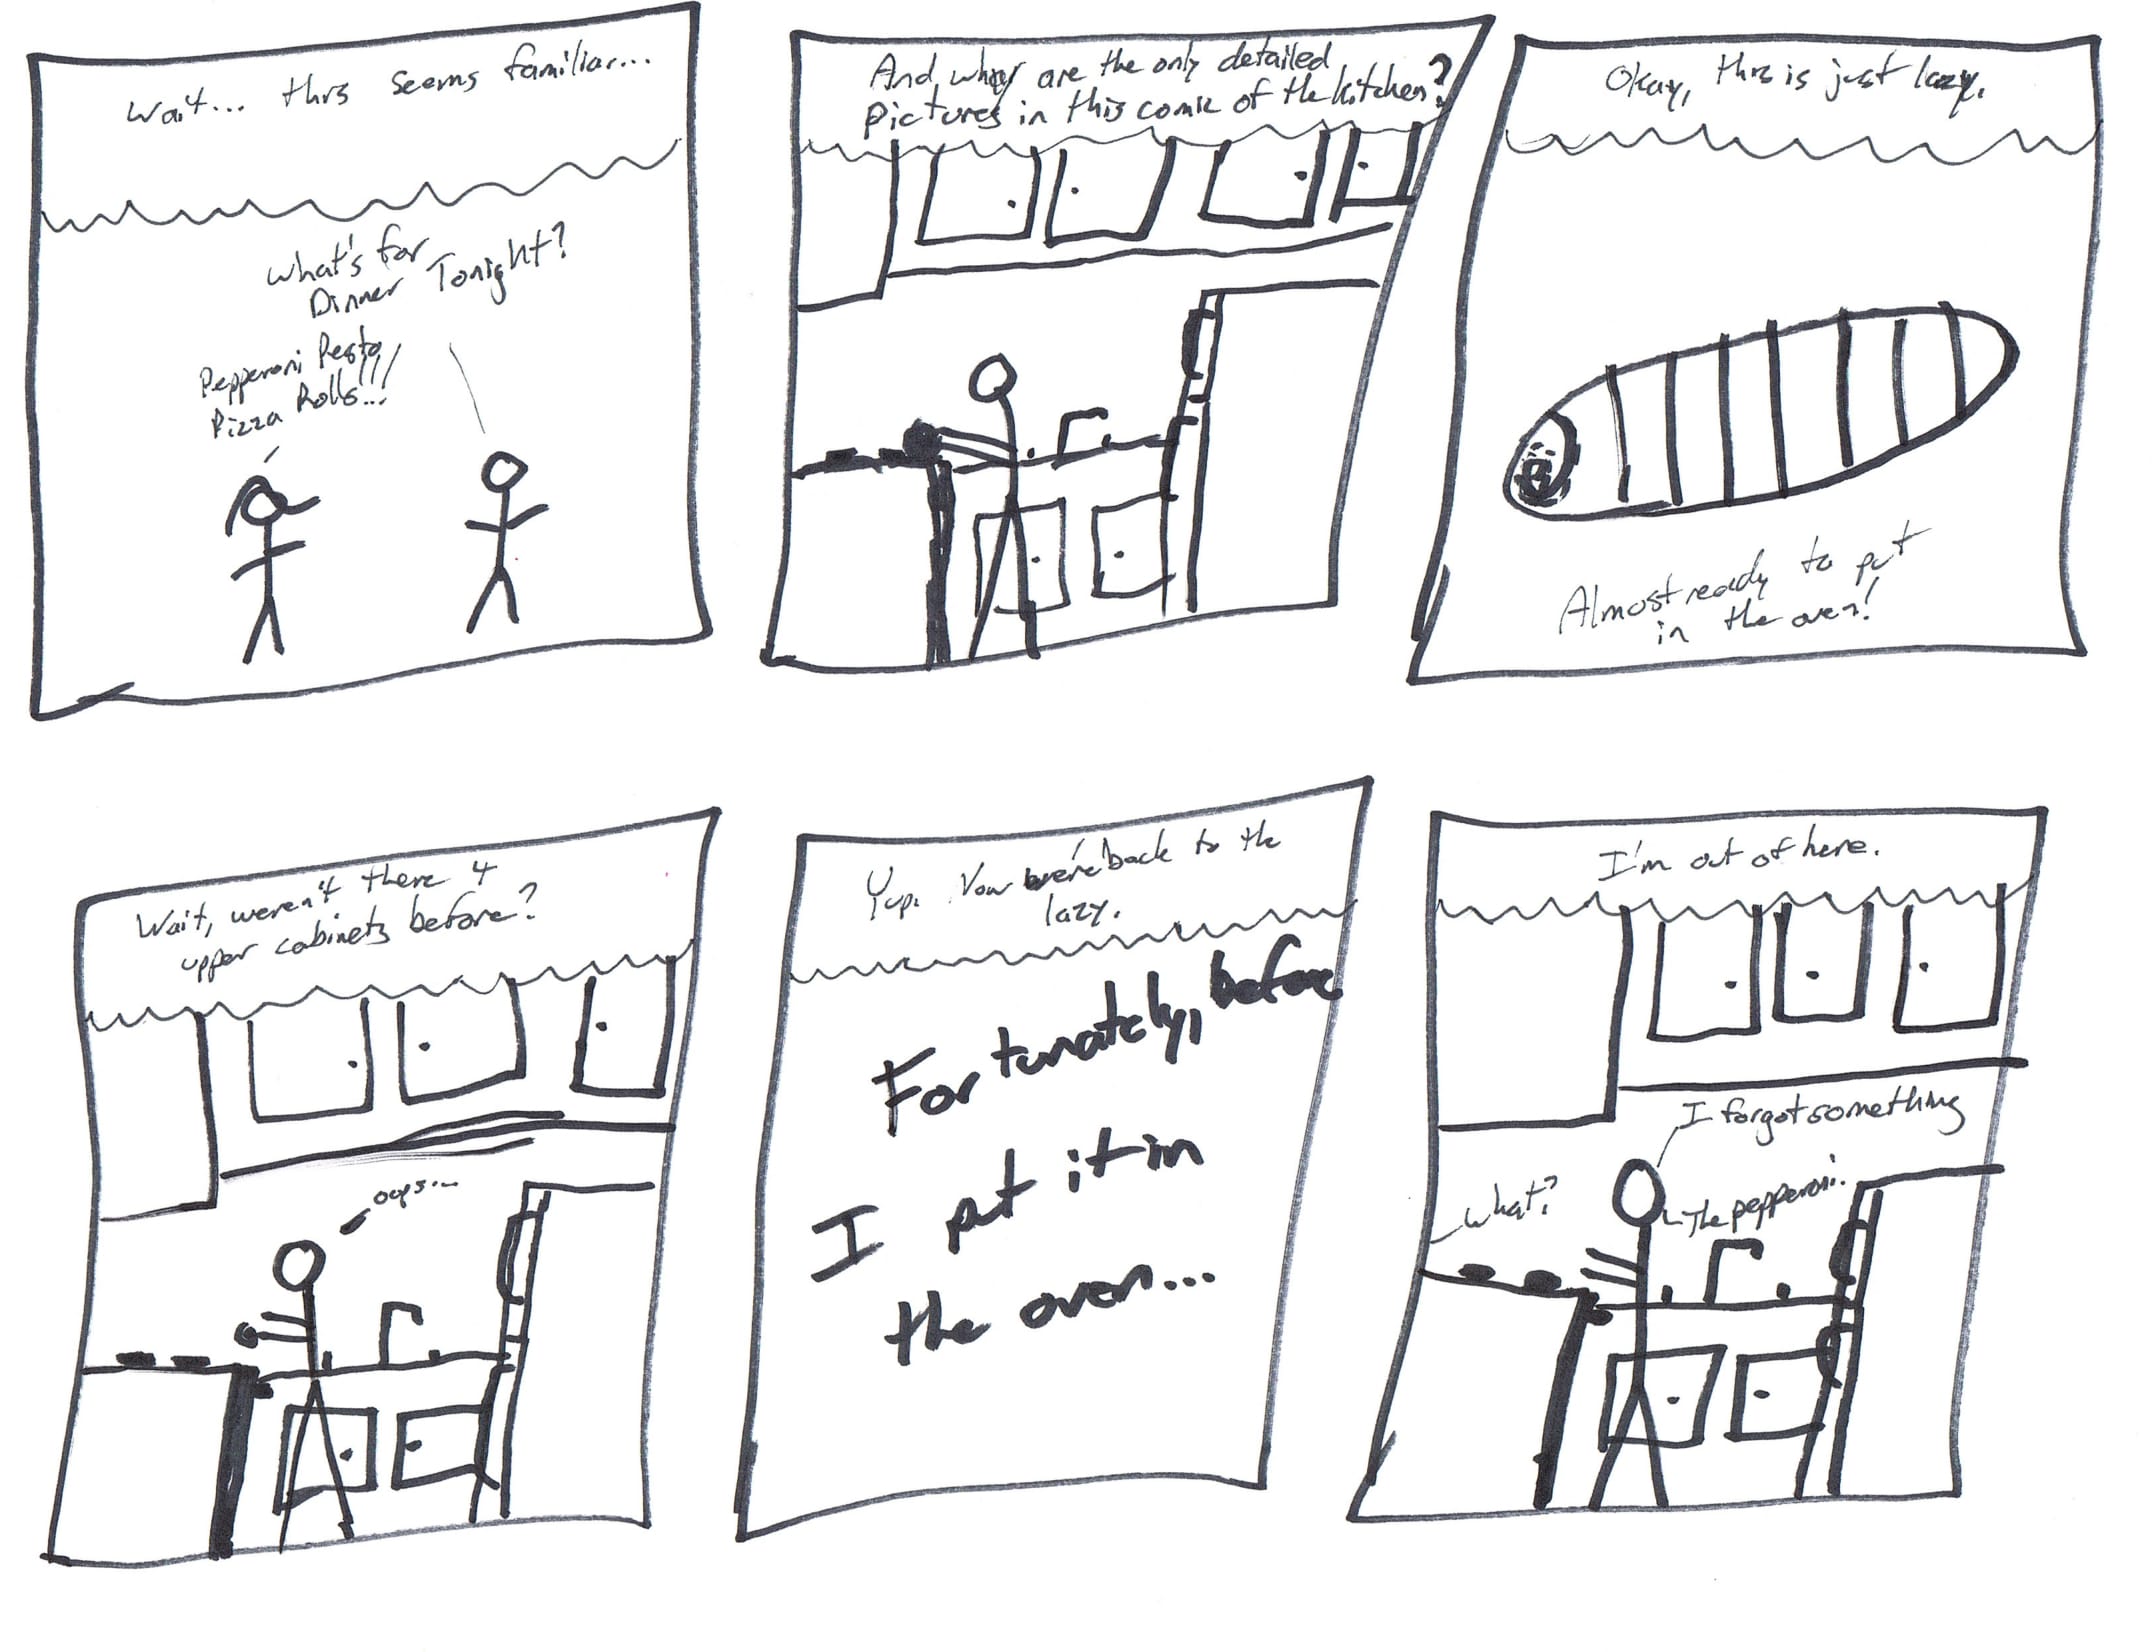 Wait... this seems familiar...
What's for
Dinner Tonight?
Pepperoni Pesto
Pizza Rolls!!!...
And, why are the only detailed
pictures in this comic of the kitchen?
Okay, this is just lazy.
Almost ready to put
in the oven!
Wait, weren't there 4
upper cabinets before?
oops...
Yup. Now we're back to the
lazy.
Fortunately, before
I put it in
the oven...
I'm out of here.
I forgot something
What?
The pepperoni.